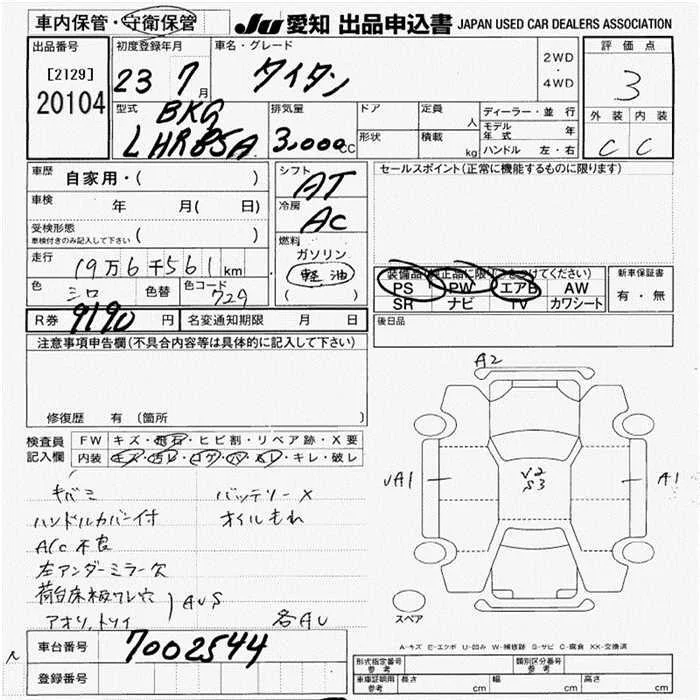 車内保管・守衛保管 JU 愛知 出品申込書 JAPAN USED CAR DEALERS ASSOCIATION
出品番号
[2129]
20104
初度登録年月
23 7月
車名・グレード
タイタン
2WD
・
4WD
評価点
3
外装 内装
C C
型式
BKG
LHR85A
排気量
3,000cc
ドア
形状
定員 人
積載 kg
ディーラー・並行
モデル年式 年
ハンドル 左・右
車歴 自家用・( )
車検 年 月(日 )
受検形態 ( )
車検付きのみ記入して下さい
走行 19万6千561km
色 シロ 色替 色コード 729
R券 9190円 名変通知期限 月 日
シフト
AT
冷房
AC
燃料
ガソリン
軽油
( )
セールスポイント(正常に機能するものに限ります)
装備品(純正品に限り○をつけてください)
PS PW エアB AW
SR ナビ TV カワシート
新車保証書
有・無
後日品
注意事項申告欄(不具合内容等は具体的に記入して下さい)
修復歴 有 (箇所 )
検査員記入欄
FW キズ・飛石・ヒビ割・リペア跡・X要
内装 キズ・汚レ・コゲ・穴・スレ・キレ・破レ
キバミ バッテリーX
ハンドルカバー付 オイルもれ
A/C不良
左アンダーミラー欠
荷台床板ワレ穴
アオリ,トリイ AUS
各AU
A2
UA1
V2
S3
A1
スペア
A-キズ E-エクボ U-凹み W-補修跡 S-サビ C-腐食 XX-交換済
車台番号 7002544
登録番号
形式指定番号 参考
類別区分番号 参考
車庫証明用 参考 長さ cm 幅 cm 高さ cm